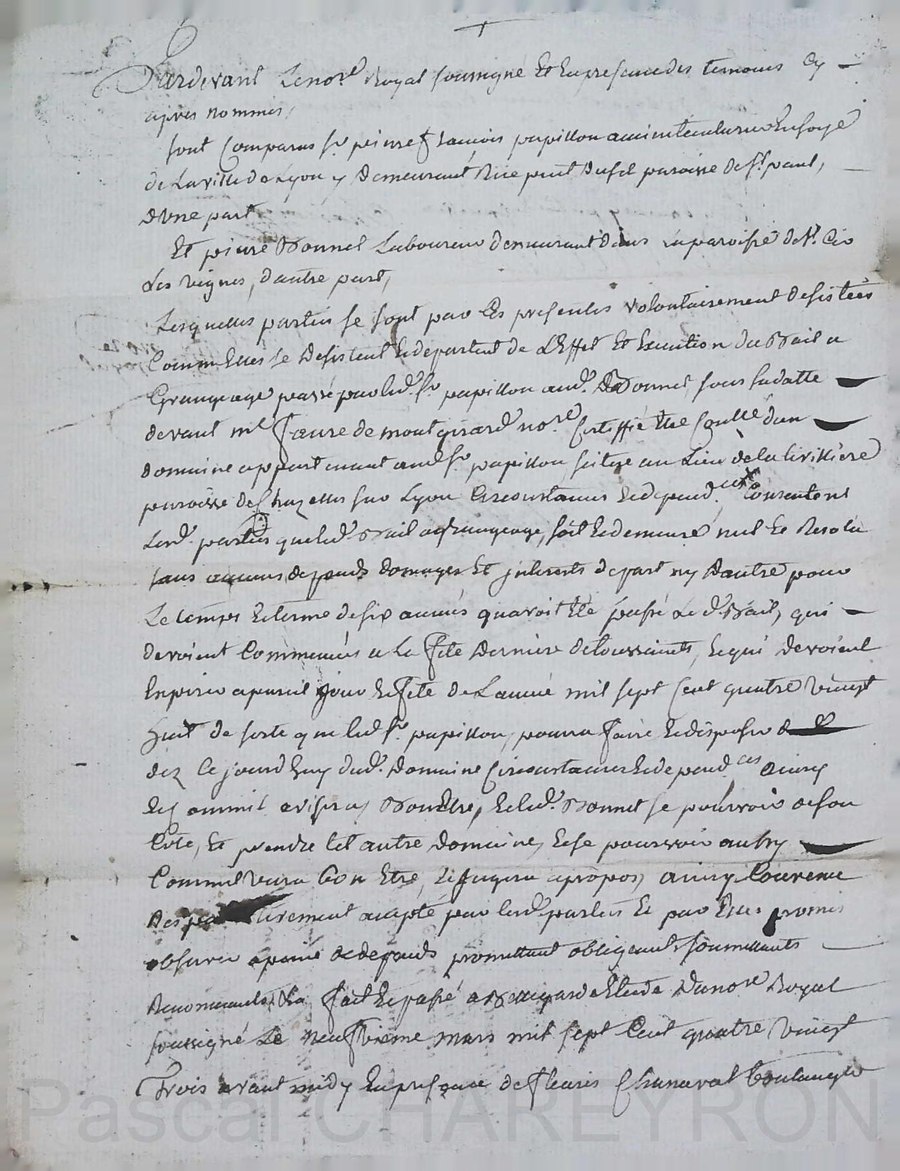 Pardevant Le no.re Royal soussigné Et en presence des temoins cy
apres nommés,
sont Comparus s.r pierre françois papillon
de La ville de Lyon y Demeurant paroisse de s.t paul,
D'une part
Et pierre Bonnel Laboureur demeurant dans la paroisse de s.t
Les vignes, d'autre part,
Lesquelles parties se sont par Ces presentes volontairement desistées
Comme Elles se Desistent Et departent de L'Effet Et Execution du Bail a
Grangeage passé par led. s.r papillon aud. Bonnel sous sa datte
devant m.e faure de montgirard no.re d'un
domaine appartenant aud. s.r papillon scitué au Lieu de la
paroisse de Chazelles sur Lyon Circonstances et depend.ces Consentent
Lesd. parties que led. Bail a grangeage, soit Et demeure nul Et Resolu
sans aucuns depends domages Et interests de part ny D'autre pour
Le temps Et terme de six années qu'avoit Eté passé Le d. Bail, qui
devoient Commencer a La fete Derniere de toussaints, Et qui devoient
Expirer a pareil jour Et fete de L'année mil sept Cent quatre vingt
huit de sorte que led. s.r papillon, pourra faire Et disposer
dez Ce jourd'huy dud. Domaine Circonstances Et depend.ces ainsy
Et Comme il avisera Bon Etre, Et led. Bonnel se pourvoir de son
Coté, Et prendre tel autre Domaine, Et se pourvoir aussy
Comme il verra Bon Etre, Et jugera apropos, ainsy Convenu
accepté par lesd. parties Et par Elles promis
observer a peine de depends promettant obligeants soumettants
Renonceants, fait Et passé a Etude Du no.re Royal
soussigné Le neufvieme mars mil sept Cent quatre vingt
Trois avant midy En presence de fleuris Chanavat boulanger
Pascal CHAREYRON